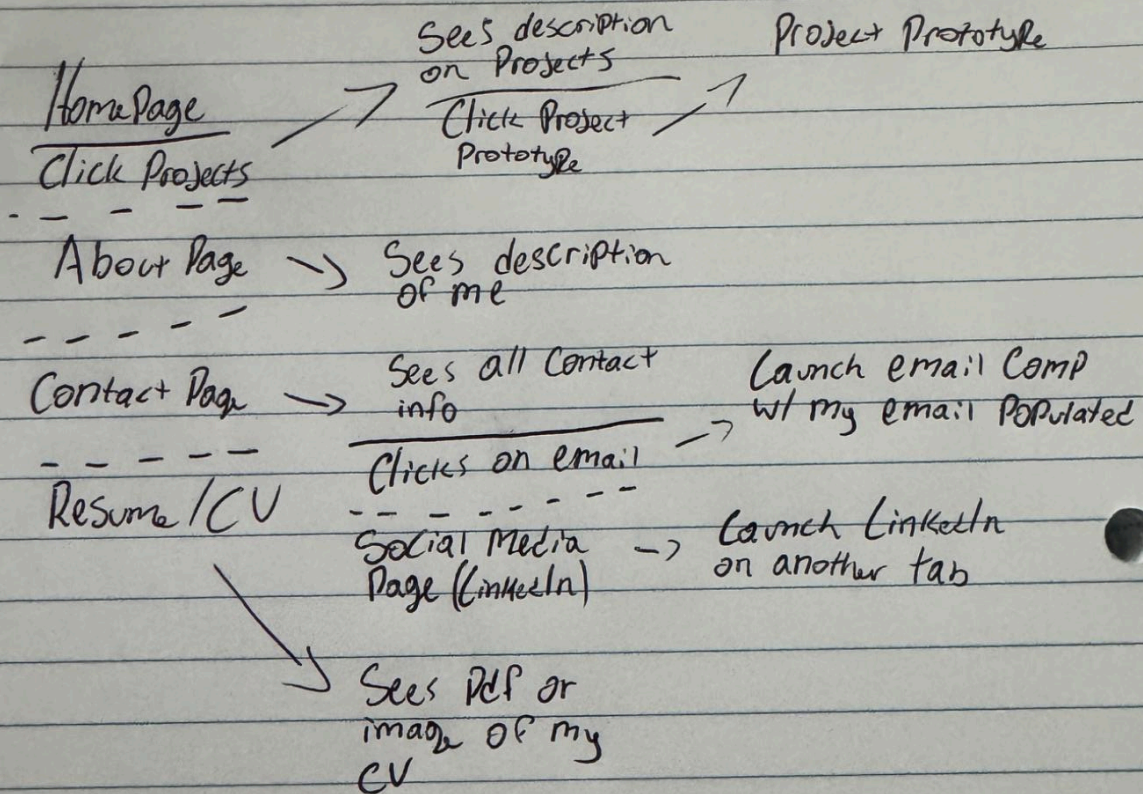 HomePage
Click Projects
Sees description
on Projects
Click Project
Prototype
Project Prototype
About Page
Sees description
of me
Contact Page
Sees all Contact
info
Clicks on email
Launch email Comp
w/ my email Populated
Social Media
Page (LinkedIn)
Launch LinkedIn
on another tab
Resume/CV
Sees Pdf or
image of my
CV